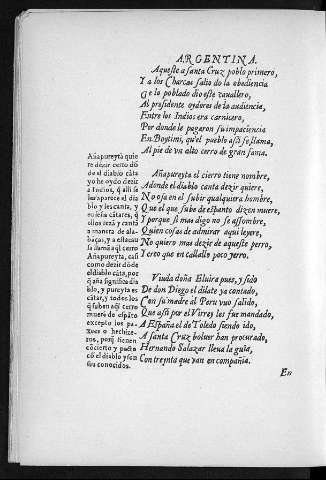 ARGENTINA.
Aqueste a santa Cruz poblo primero,
Y a los Charcas salio do la obediencia
De lo poblado dio este cauallero,
Al presidente oydores de la audiencia,
Entre los Indios era carnicero,
Por donde le pagaron su impaciencia
En Boytimi, qu'el pueblo assi se llama,
Al pie de vn alto cerro de gran fama.
Añapureytà quie
re dezir cerro dõ
de el diablo cãta
yo he oydo dezir
a Indios, q̃ alli se
les aparece el dia
blo y les canta, y
enseña cãtares, q̃
ellos despues can
tan a manera de
alabãças, y a esta cau
sa llamã aql cerro
Añapureyta, casi
como dezir dõ de
el diablo cãta, por
q̃ aña significa dia
blo, y pureyta es
cãtar, y todos los
q̃ suben aqĩ cerro
muerẽ de espãto
excepto los pa-
xees o hechize-
ros, porq̃ tienen
cõcierto y pacto
cõ el diablo y son
sus conocidos.
Añapureytà el cierro tiene nombre,
Adonde el diablo canta dezir quiere,
No osa en el subir qualquiera hombre,
Que el que sube de espanto dizen muere,
Y porque si mas digo no se assombre,
Quien cosas de admirar aqui leyere,
No quiero mas dezir de aqueste perro,
Y creo que en callallo poco yerro.
Viuda doña Eluira pues, y sido
De don Diego el dilate ya contado,
Con su madre al Peru vuo salido,
Que assi por el Virrey les fue mandado,
A España el de Toledo siendo ido,
A santa Cruz boluer han procurado,
Hernando Salazar lleua la guia,
Con treynta que van en compañia.
En